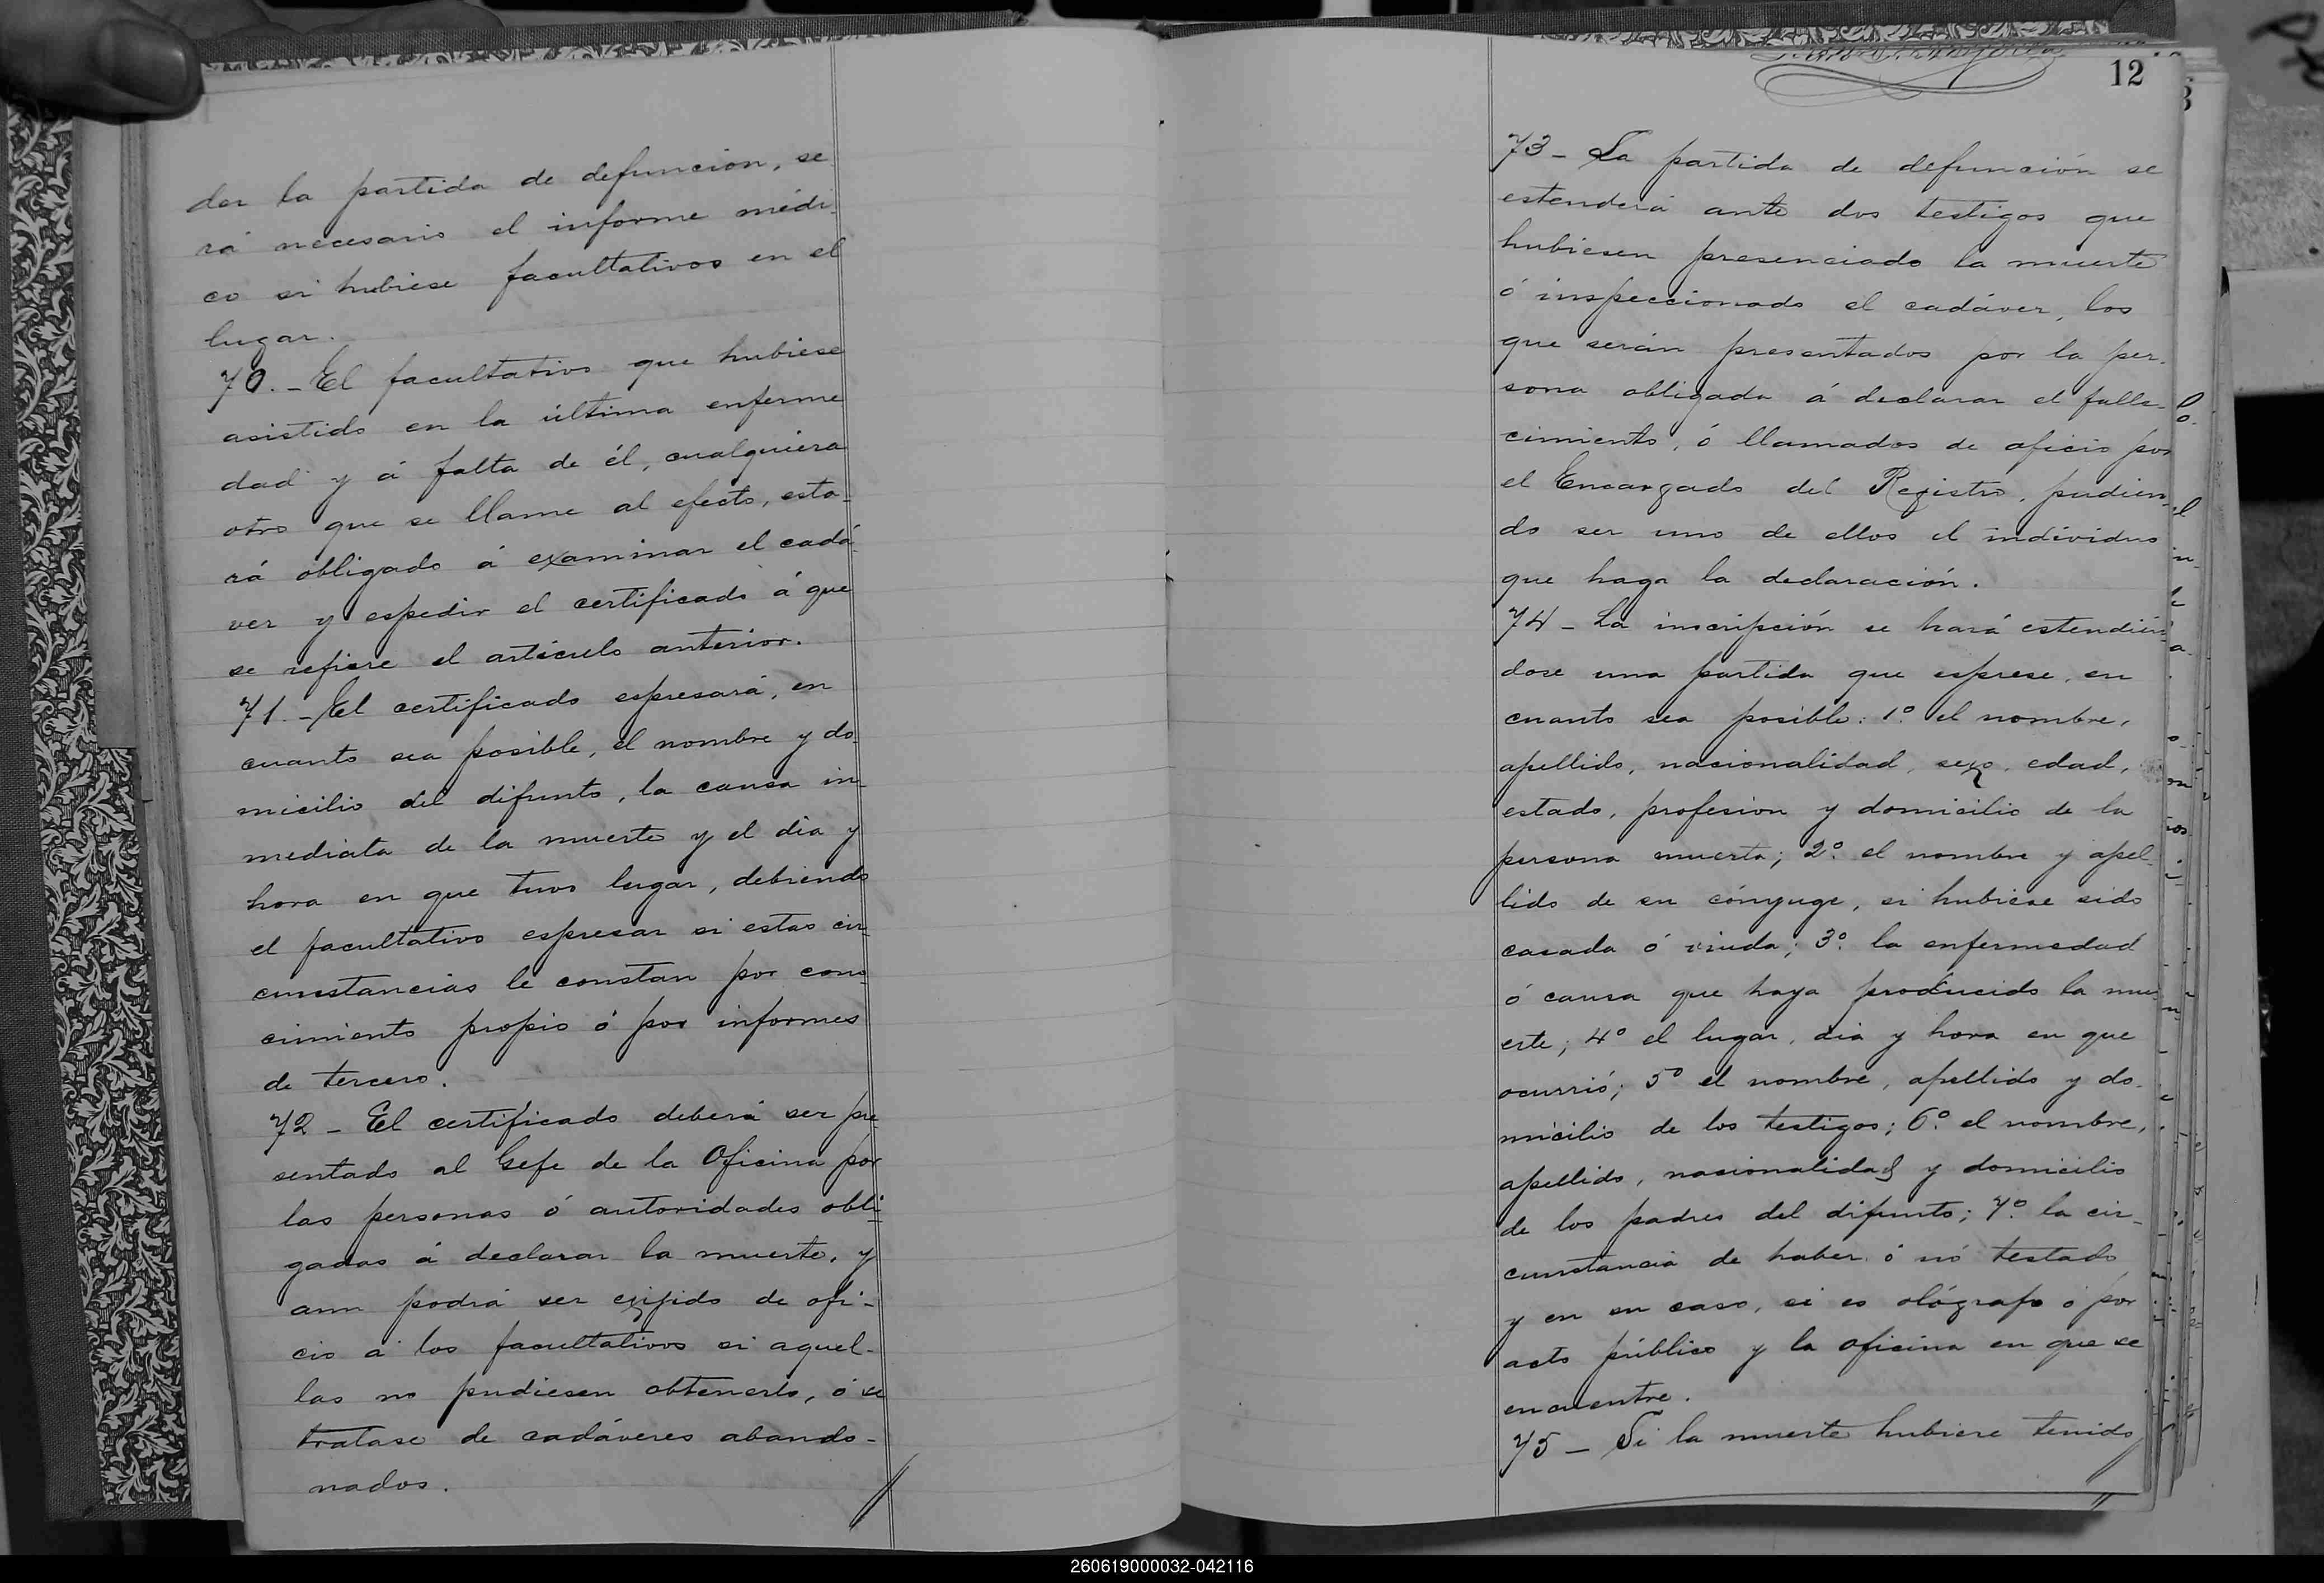 der la partida de defunción, se
rá necesario el informe médi
co si hubiese facultativos en el
lugar.
70.- El facultativo que hubiese
asistido en la última enferme
dad y á falta de él, cualquiera
otro que se llame al efecto, esta-
rá obligado á examinar el cadá
ver y espedir el certificado á que
se refiere el artículo anterior.
71.- El certificado espresará, en
cuanto sea posible, el nombre y do-
micilio del difunto, la causa in-
mediata de la muerte y el dia y
hora en que tuvo lugar, debiendo
el facultativo espresar si estas cir-
cunstancias le constan por cono-
cimiento propio ó por informes
de tercero.
72 - El certificado deberá ser pre
sentado al Gefe de la Oficina por
las personas ó autoridades obli-
gadas á declarar la muerte, y
aun podrá ser exijido de ofi-
cio á los facultativos si aquel-
las no pudiesen obtenerlo, ó se
tratase de cadáveres abando-
nados.
12
73 - La partida de defunción se
estenderá ante dos testigos que
hubiesen presenciado la muerte
ó inspeccionado el cadáver, los
que serán presentados por la per-
sona obligada á declarar el falle-
cimiento, ó llamados de oficio por
el Encargado del Registro, pudien-
do ser uno de ellos el individuo
que haga la declaración.
74 - La inscripción se hará estendién
dose una partida que esprese, en
cuanto sea posible: 1º el nombre,
apellido, nacionalidad, sexo, edad,
estado, profesion y domicilio de la
persona muerta; 2º el nombre y apel-
lido de su cónyuge, si hubiese sido
casada ó viuda; 3º la enfermedad
ó causa que haya producido la mu-
erte; 4º el lugar, dia y hora en que
ocurrió; 5º el nombre, apellido y do-
micilio de los testigos; 6º el nombre,
apellido, nacionalidad y domicilio
de los padres del difunto; 7º la cir-
cunstancia de haber ó nó testado
y en su caso, si es ológrafo ó por
acto público y la oficina en que se
encuentre.
75 - Si la muerte hubiere tenido
260619000032-042116